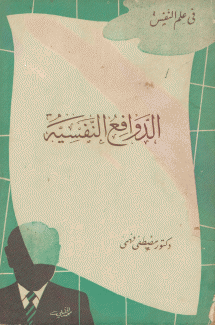 في علم النفس
الدوافع النفسية
دكتور مصطفى فهمي